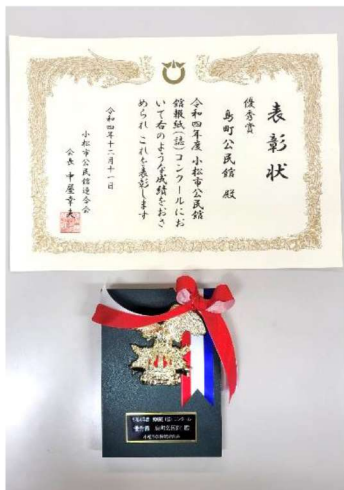 表彰状
優秀賞
島町公民館 殿
令和四年度 小松市公民館
館報紙(誌)コンクールにお
いて右のような成績をおさ
められ これを表彰します
令和四年十二月十一日
小松市公民館連合会
会長 中屋幸夫